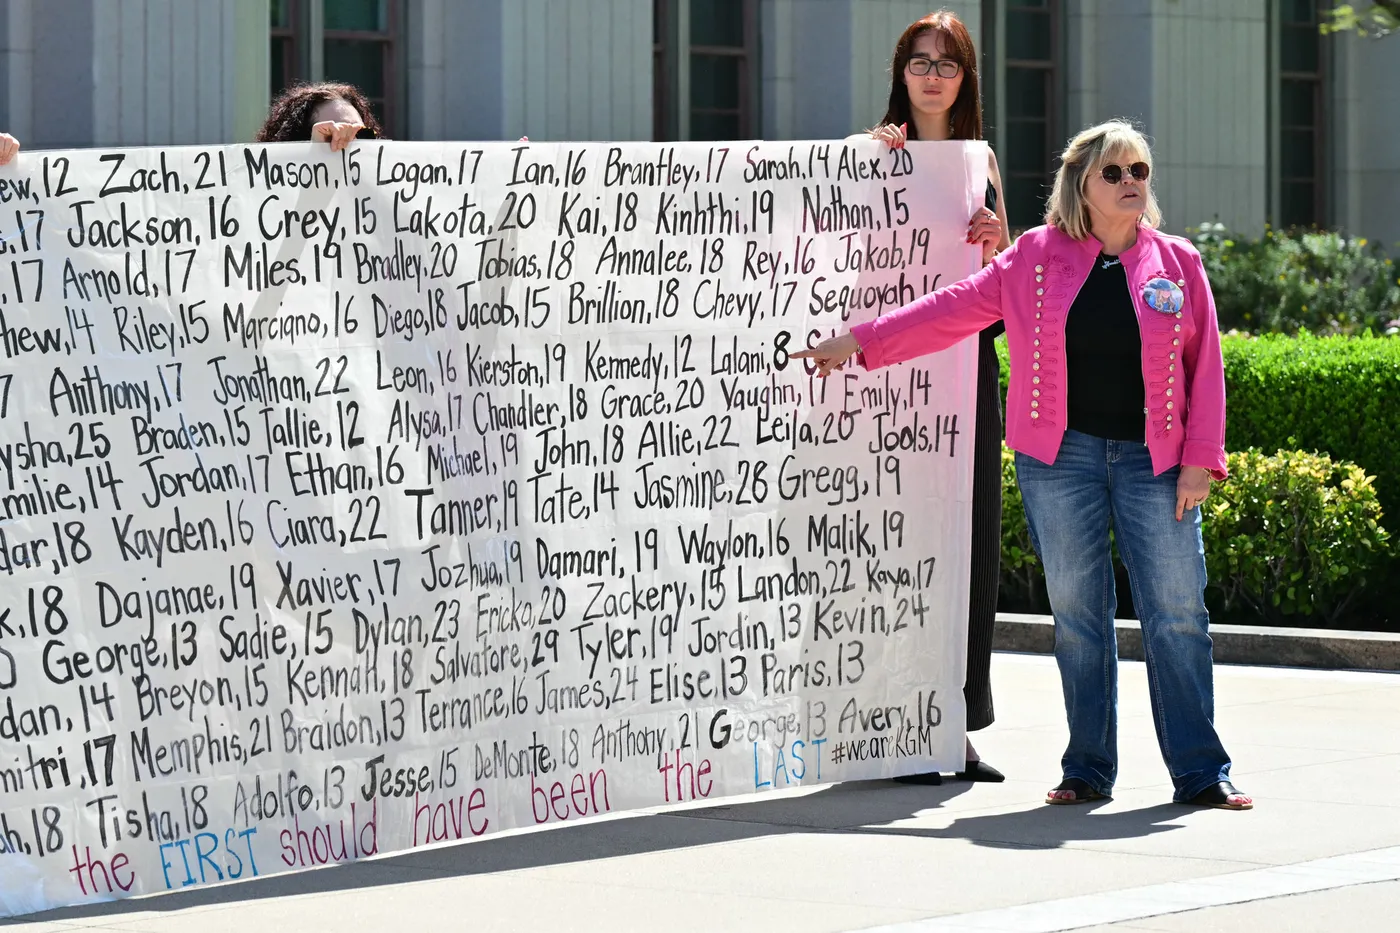 12 Zach, 21 Mason, 15 Logan, 17 Ian, 16 Brantley, 17 Sarah, 14 Alex, 20
17 Jackson, 16 Crey, 15 Lakota, 20 Kai, 18 Kinhthi, 19 Nathan, 15
17 Arnold, 17 Miles, 19 Bradley, 20 Tobias, 18 Annalee, 18 Rey, 16 Jakob, 19
14 Riley, 15 Marciano, 16 Diego, 18 Jacob, 15 Brillion, 18 Chevy, 17 Sequoyah, 16
7 Anthony, 17 Jonathan, 22 Leon, 16 Kierston, 19 Kennedy, 12 Lalani, 8
25 Braden, 15 Tallie, 12 Alysa, 17 Chandler, 18 Grace, 20 Vaughn, 17 Emily, 14
14 Jordan, 17 Ethan, 16 Michael, 19 John, 18 Allie, 22 Leila, 20 Jools, 14
18 Kayden, 16 Ciara, 22 Tanner, 19 Tate, 14 Jasmine, 28 Gregg, 19
18 Dajanae, 19 Xavier, 17 Jozhua, 19 Damari, 19 Waylon, 16 Malik, 19
George, 13 Sadie, 15 Dylan, 23 Ericka, 20 Zackery, 15 Landon, 22 Kaya, 17
14 Breyon, 15 Kennah, 18 Salvatore, 29 Tyler, 19 Jordin, 13 Kevin, 24
17 Memphis, 21 Braidon, 13 Terrance, 16 James, 24 Elise, 13 Paris, 13
18 Tisha, 18 Adolfo, 13 Jesse, 15 DeMonte, 18 Anthony, 21 George, 13 Avery, 16
the FIRST should have been the LAST #weareKGM